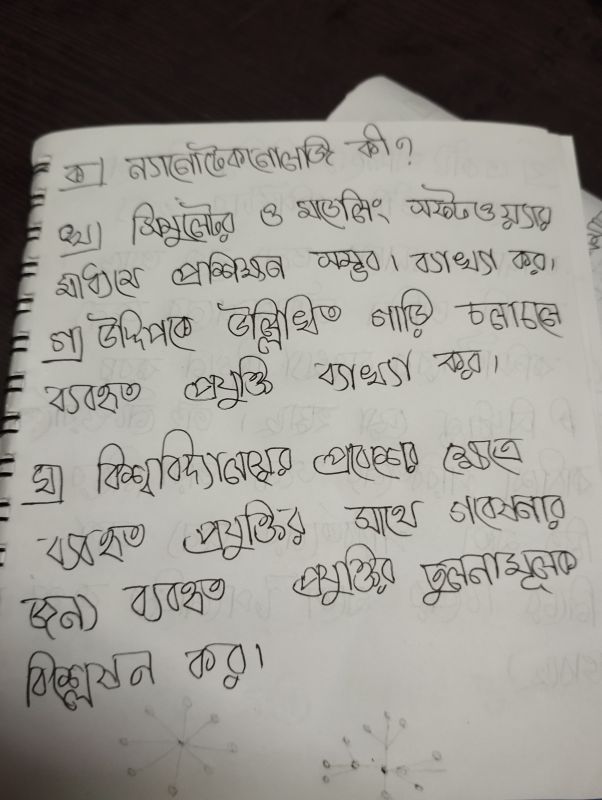 ক) ন্যানোটেকনোলজি কী?
খ) সিমুলেটর ও মডেলিং সফটওয়্যার
মাধ্যমে প্রশিক্ষন সম্ভব। ব্যাখ্যা কর।
গ) উদ্দিপকে উল্লিখিত গাড়ি চলাচলে
ব্যবহৃত প্রযুক্তি ব্যাখ্যা কর।
ঘ) বিশ্ববিদ্যালয়ের প্রবেশের ক্ষেত্রে
ব্যবহৃত প্রযুক্তির সাথে গবেষনার
জন্য ব্যবহৃত প্রযুক্তির তুলনামূলক
বিশ্লেষন কর।